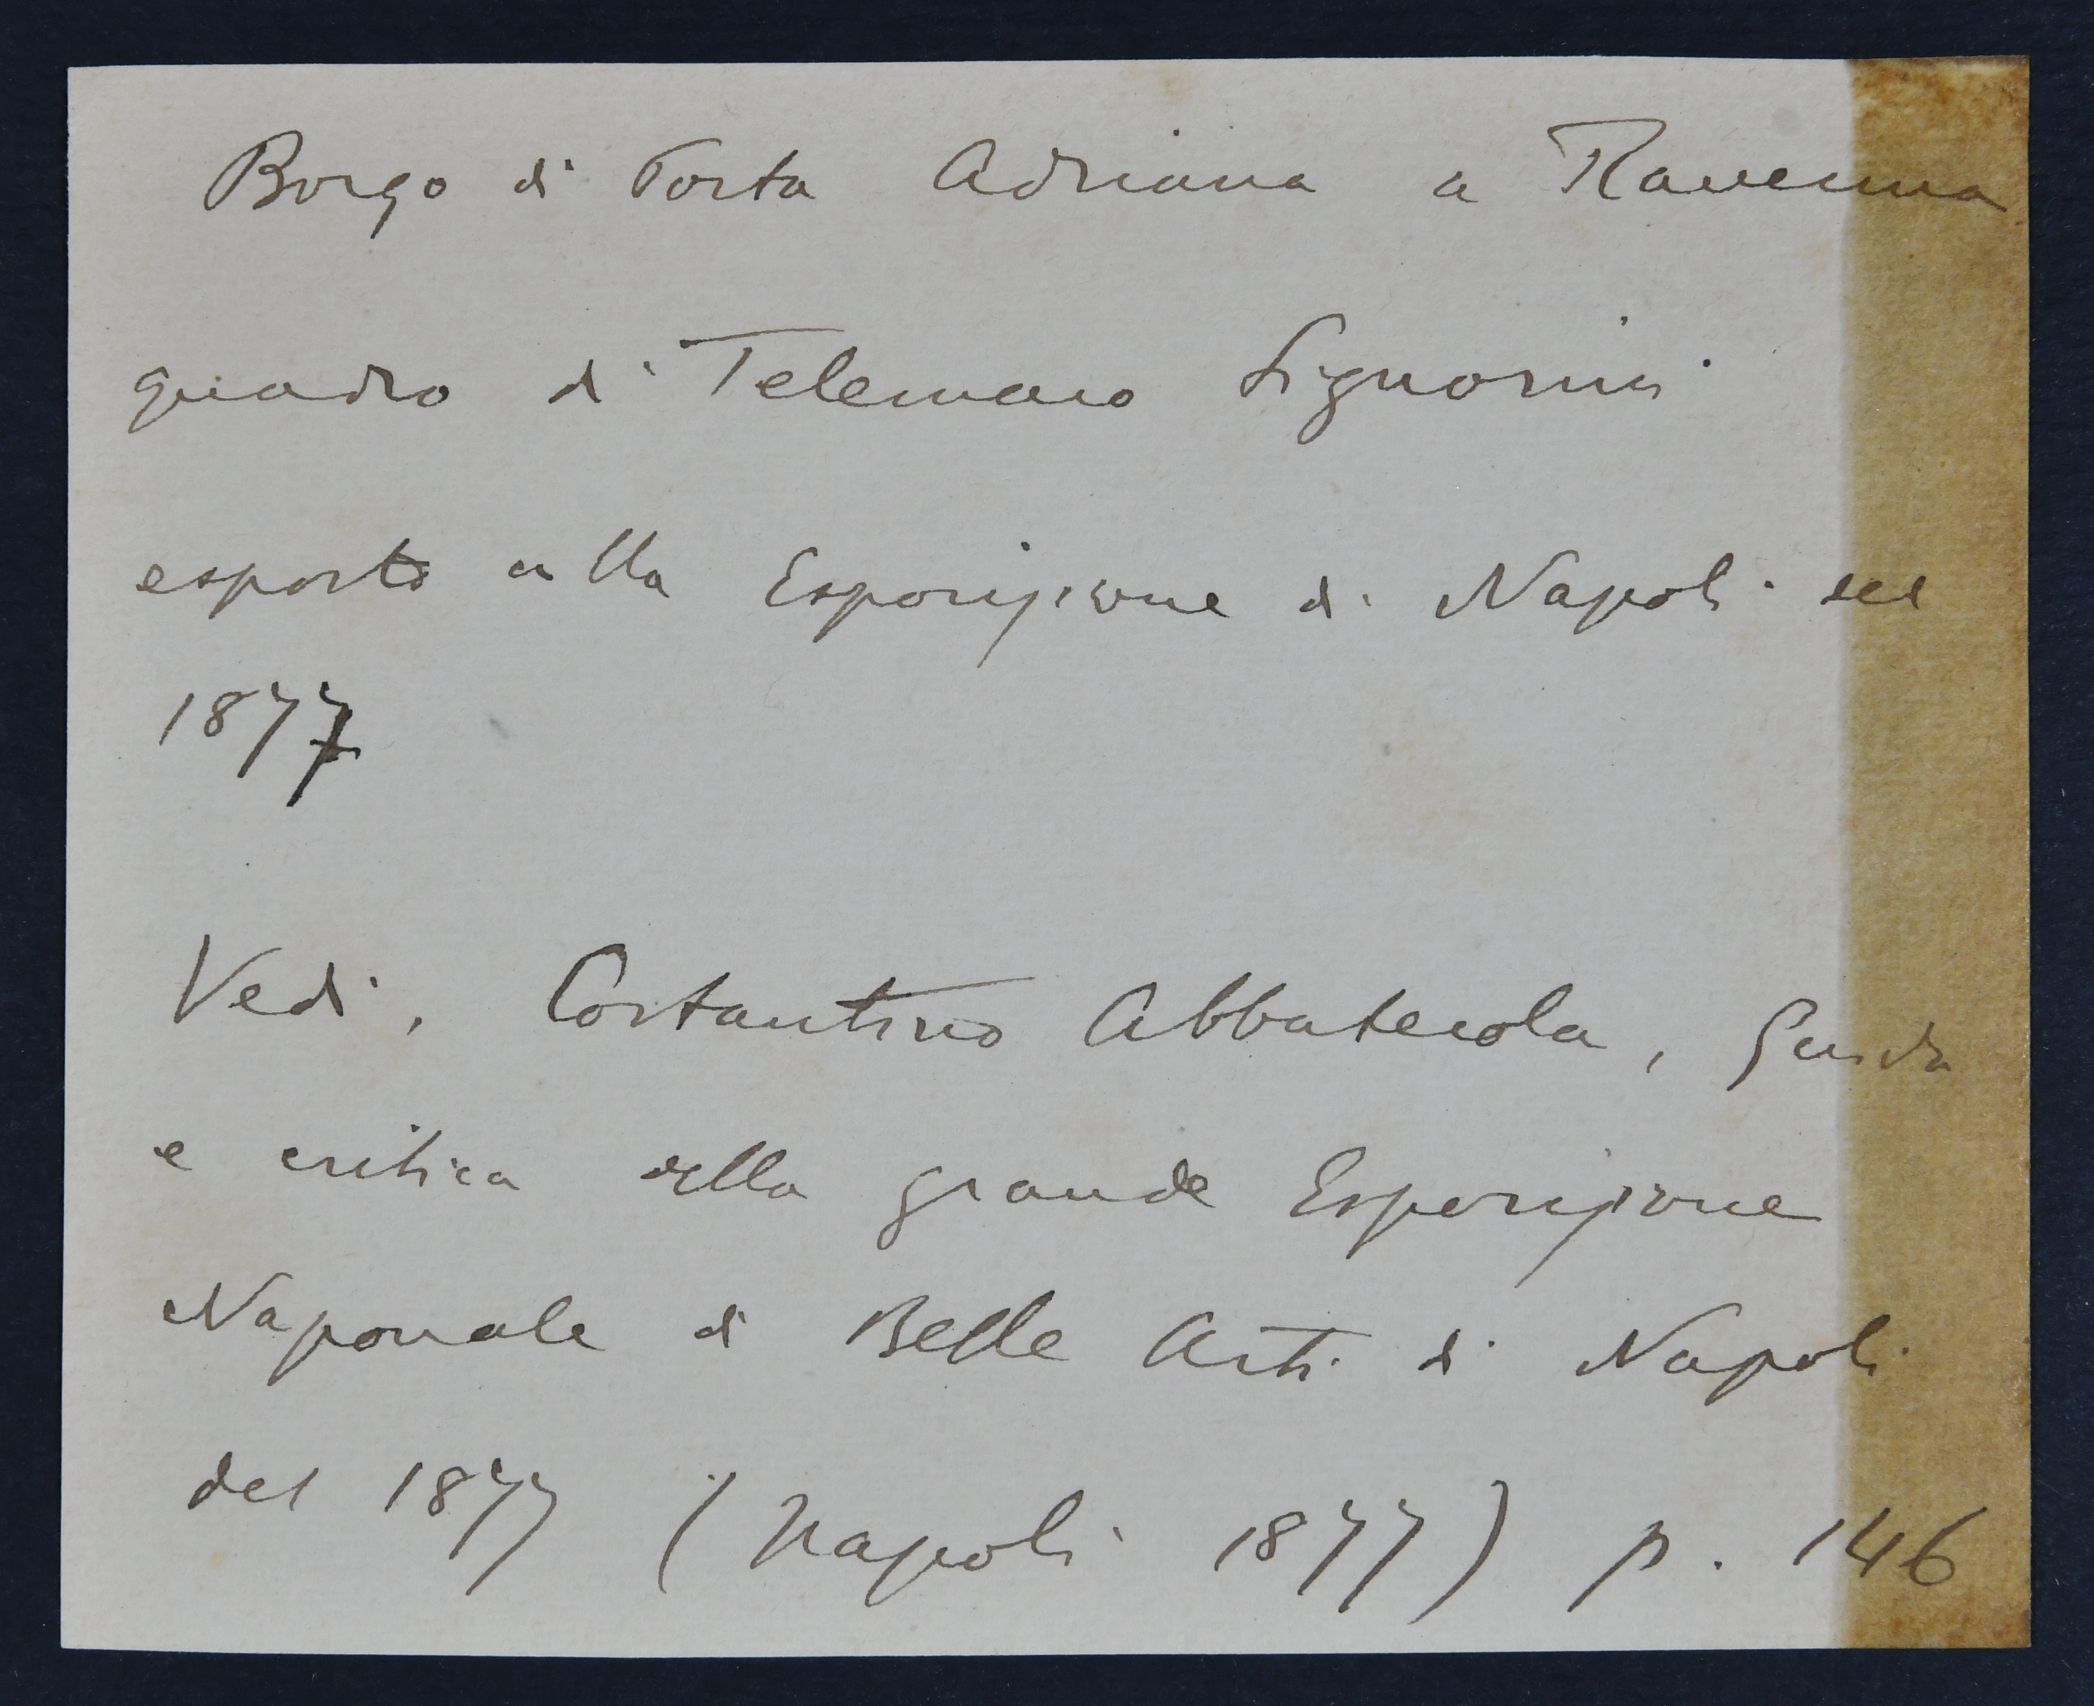 Borgo di Porta Adriana a Ravenna
quadro di Telemaco Signorini
esposto alla Esposizione di Napoli del
1877
Vedi, Costantino Abbatecola, Guida
e critica della grande Esposizione
Nazionale di Belle Arti di Napoli
del 1877 (Napoli 1877) p. 146